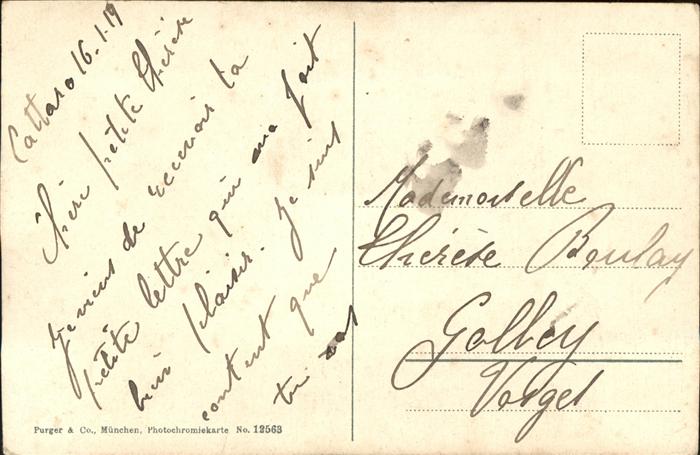 Cattaro 16.1.19
Chère petite Thérèse
Je viens de recevoir ta
petite lettre qui m'a fait
bien plaisir. Je suis
content que
tu vas
Mademoiselle
Thérèse Boulay
Golbey
Vosges
Purger & Co., München, Photochromiekarte No. 12563